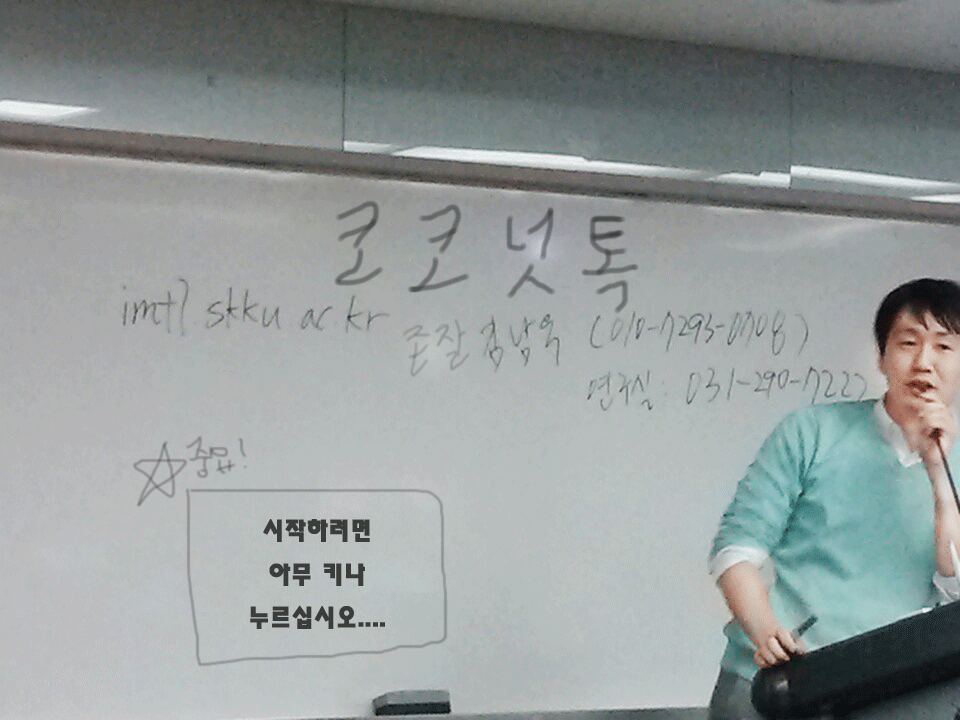 코코넛톡
imtl.skku.ac.kr
존잘 김남욱 (010-7293-0708)
연구실: 031-290-7222
☆중요!
시작하려면
아무 키나
누르십시오....